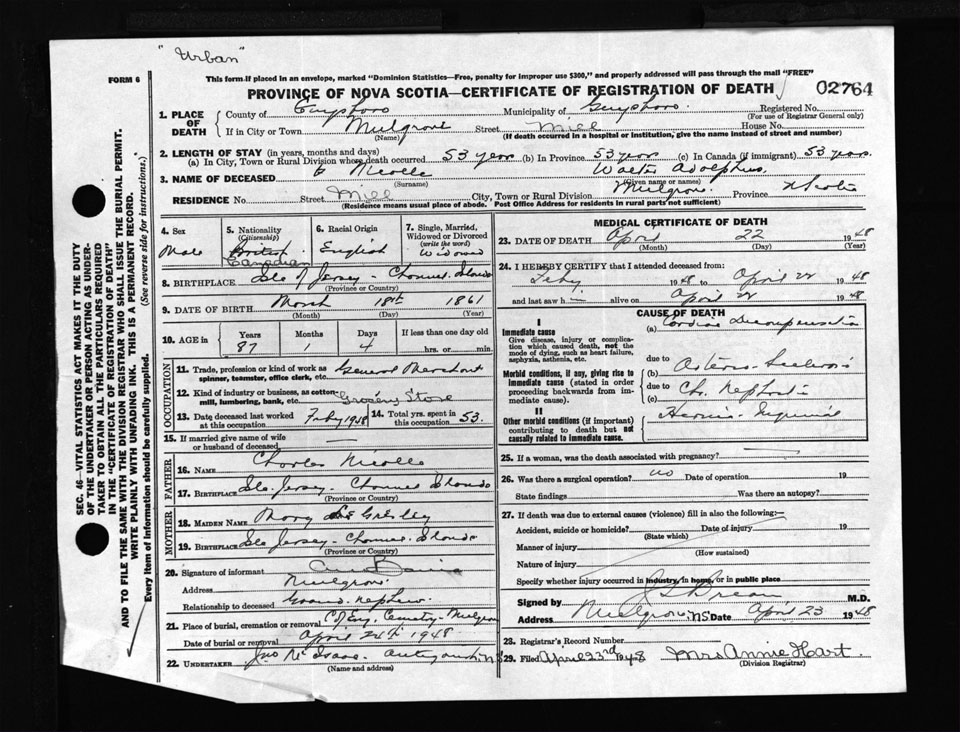 "Urban"
FORM 6
This form if placed in an envelope, marked "Dominion Statistics—Free, penalty for improper use $300," and properly addressed will pass through the mail "FREE"
PROVINCE OF NOVA SCOTIA—CERTIFICATE OF REGISTRATION OF DEATH 02764
1. PLACE OF DEATH
County of Guysboro Municipality of Guysboro. Registered No.
(For use of Registrar General only)
If in City or Town Mulgrave Street Mill House No.
(Name) (If death occurred in a hospital or institution, give the name instead of street and number)
2. LENGTH OF STAY (in years, months and days)
(a) In City, Town or Rural Division where death occurred 53 years (b) In Province 53 years (c) In Canada (if immigrant) 53 years
3. NAME OF DECEASED Nicolle Walter Adolphus.
(Surname) (Given name or names)
RESIDENCE No. Street Mill City, Town or Rural Division Mulgrave. Province N Scotia
(Residence means usual place of abode. Post Office Address for residents in rural parts not sufficient)
4. Sex Male
5. Nationality (Citizenship) British Canadian
6. Racial Origin English
7. Single, Married, Widowed or Divorced (write the word) Widowed
8. BIRTHPLACE Isle of Jersey - Channel Islands
(Province or Country)
9. DATE OF BIRTH March 18th 1861
(Month) (Day) (Year)
10. AGE in Years Months Days If less than one day old
87 1 4 hrs. or min.
OCCUPATION
11. Trade, profession or kind of work as spinner, teamster, office clerk, etc. General Merchant
12. Kind of industry or business, as cotton-mill, lumbering, bank, etc. Grocery Store
13. Date deceased last worked at this occupation Feby 1948
14. Total yrs. spent in this occupation 53.
15. If married give name of wife or husband of deceased
FATHER
16. NAME Charles Nicolle
17. BIRTHPLACE Isle Jersey - Channel Islands
(Province or Country)
MOTHER
18. MAIDEN NAME Mary Le Gresley
19. BIRTHPLACE Isle Jersey - Channel Islands
(Province or Country)
20. Signature of informant
Address Mulgrave
Relationship to deceased Grand nephew.
21. Place of burial, cremation or removal C of Eng. Cemetry - Mulgrave
Date of burial or removal April 24th 1948
22. UNDERTAKER Jno McIsaac Antigonish N.S
(Name and address)
MEDICAL CERTIFICATE OF DEATH
23. DATE OF DEATH April 22 1948
(Month) (Day) (Year)
24. I HEREBY CERTIFY that I attended deceased from:
Feby 1948 to April 22 1948
and last saw h i alive on April 22 1948
CAUSE OF DEATH
I
Immediate cause
Give disease, injury or complication which caused death, not the mode of dying, such as heart failure, asphyxia, asthenia, etc.
(a) Cardiac Decompensation
due to
Morbid conditions, if any, giving rise to immediate cause (stated in order proceeding backwards from immediate cause).
Arterio-Sclerosis
due to Ch. Nephritis
(c)
II
Other morbid conditions (if important) contributing to death but not causally related to immediate cause.
Hernia - Inguinal
25. If a woman, was the death associated with pregnancy?
26. Was there a surgical operation? no Date of operation 19
State findings Was there an autopsy?
27. If death was due to external causes (violence) fill in also the following:—
Accident, suicide or homicide? Date of injury 19
(State which)
Manner of injury
(How sustained)
Nature of injury
Specify whether injury occurred in industry, in home, or in public place
Signed by M.D.
Address Mulgrave NS Date April 23 1948
28. Registrar's Record Number
29. Filed April 23rd 1948 Mrs Annie Hart.
(Division Registrar)
SEC. 46—VITAL STATISTICS ACT MAKES IT THE DUTY
OF THE UNDERTAKER OR PERSON ACTING AS UNDERTAKER TO OBTAIN ALL THE PARTICULARS REQUIRED
IN THE "CERTIFICATE OF REGISTRATION OF DEATH"
AND TO FILE THE SAME WITH THE DIVISION REGISTRAR WHO SHALL ISSUE THE BURIAL PERMIT.
WRITE PLAINLY WITH UNFADING INK. THIS IS A PERMANENT RECORD.
Every item of Information should be carefully supplied. (See reverse side for instructions.)